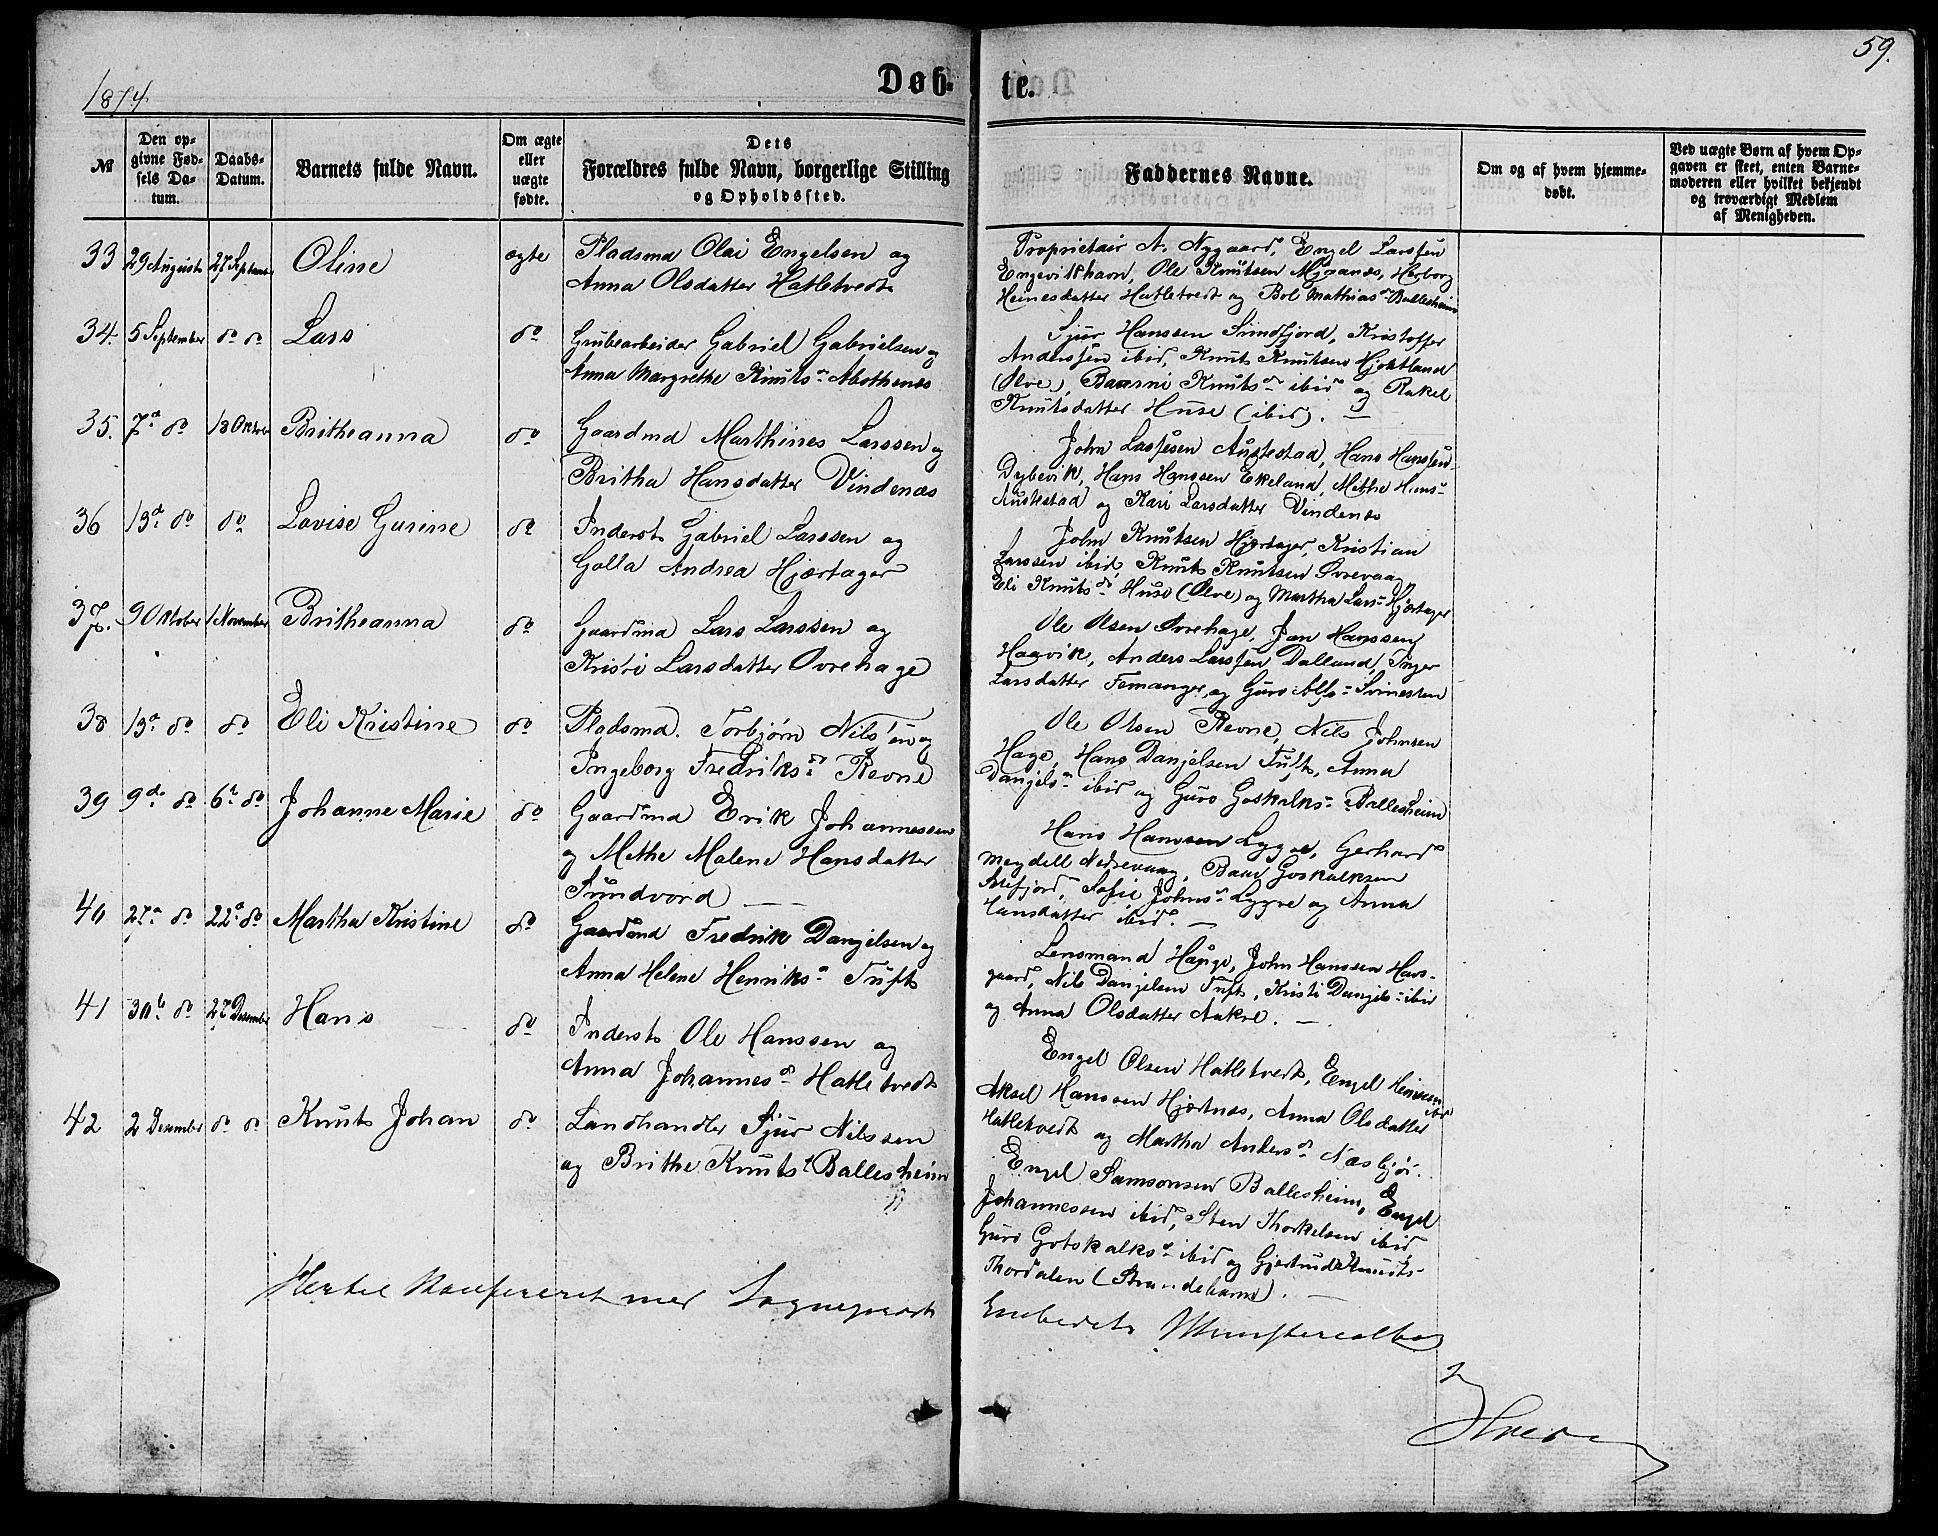 1874.
Døb-
te.
59.
№
Den op-
givne Fød-
sels Da-
tum.
Daabs-
Datum.
Barnets fulde Navn.
Om ægte
eller
uægte
fødte.
Dets
Forældres fulde Navn, borgerlige Stilling
og Opholdssted.
Faddernes Navne.
Om og af hvem hjemme-
døbt.
Ved uægte Børn af hvem Op-
gaven er skeet, enten Barne-
moderen eller hvilket bekjendt
og troværdigt Medlem
af Menigheden.
33 29 August 27 Septemb Oline ægte Pladsmd Olai Engelsen og
Anna Olsdatter Hatletvedt
Proprietair A. Nygaard, Engel Larssen
Engevikhavn, Ole Knutsen Mjaanæs, Herborg
Heinesdatter Hatletvedt og Bol Mathiasdr Ballesheim
34 5 September do do Lars do Grubearbeider Gabriel Gabrielsen og
Anna Margrethe Knutsdr
Sjur Hanssen Sundfjord, Kristoffer
Anderssen ibid, Knut Knutsen Hjortland
(Ølve), Baarni Knutsdr ibid og Rakel
Knutsdatter Huse (ibid). —
35. 7de do 18 Oktober Britheanna do Gaardmd Marthines Larssen og
Britha Hansdatter Vindenæs
John Lassesen Austestad, Hans Hanssen
Dybevik, Hans Hanssen Ekeland, Methe Hans-
Austestad og Kari Larsdatter Vindenæs
36 13de do do Lovise Gurine do Inderst Gabriel Larssen og
Golla Andrea Hjærtager
John Knutsen Hjærtager, Kristian
Larssen ibid, Knut Knutsen Øvrevaag,
Eli Knutsdr Huse (Ølve) og Martha Larsdr Hjærtager
37. 9 Oktober 1 November Britheanna do Gaardmd Lars Larssen og
Kristi Larsdatter Øvrehage
Ole Olsen Øvrehage, Jan Hanssen
Haavik, Anders Larssen Dalland, Inger
Larsdatter Femanger, og Guro Alfs-
38 13de do do Eli Kristine do Pladsmd. Torbjørn Nils'en og
Ingeborg Fredriksdr Revne
Ole Olsen Revne, Nils Johnsen
Hage, Hans Danjelsen Tuft, Anna
Danjelsdr ibid og Guro Goskalks- Ballesheim
39 9de do 6te do Johanne Marie do Gaardmd Erik Johannessen
og Methe Malene Hansdatter
Sundvord —
Hans Hanssen Lygre, Gerhard
Meydell Nedrevaag, Baar Goskalksen
Sofie Johnsdr Lygre og Anna
Hansdatter ibid. —
40 27de do 22de do Martha Kristine do Gaardmd Fredrik Danjelsen og
Anna Helene Henriksdr Tuft
Lensmand Hauge, John Hanssen Havs-
gaard, Nils Danjelsen Tuft, Kristi Danjels- ibid
og Anna Olsdatter Aakre. —
41 30te do 27 Desember Hans do Inderst Ole Hanssen og
Anna Johannesdr Hatletvedt
Engel Olsen Hatletvedt, Engel Heinesen ibid
Aksel Hanssen Hjærtnæs, Anna Olsdatter
Hatletvedt og Martha Andersdr Næsbjør.
42 2 Desember do do Knut Johan do Landhandler Sjur Nilssen
og Brithe Knuts- Ballesheim
Engel Samsonsen Ballesheim, Engel
Johannessen ibid, Sten Thorkelsen ibid
Guro Gotskalksdr ibid og Gjertrud Knuts-
Thordalen (Strandebarm). —
Hertil konfereret med Sogneprest
Embedets Ministerialbog